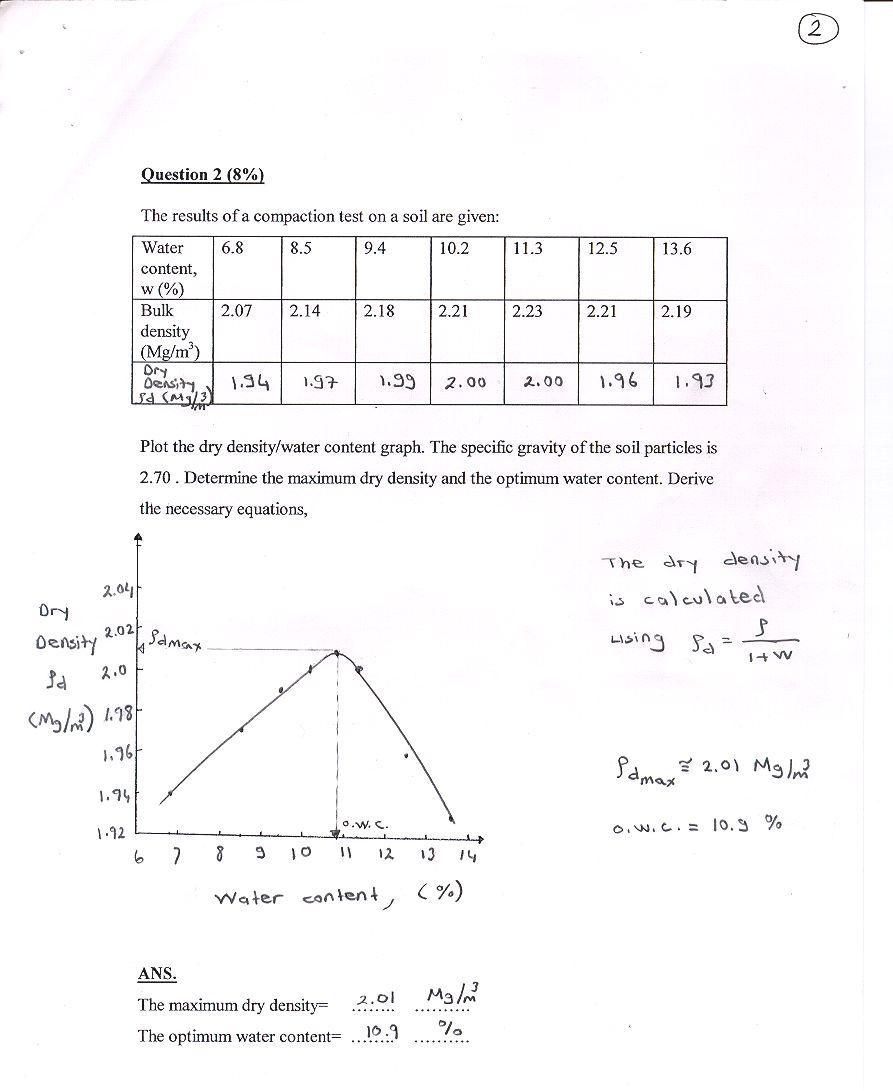 2
Question 2 (8%)
The results of a compaction test on a soil are given:
Water content, w (%) 6.8 8.5 9.4 10.2 11.3 12.5 13.6
Bulk density (Mg/m³) 2.07 2.14 2.18 2.21 2.23 2.21 2.19
Dry Density, ρd (Mg/m³) 1.94 1.97 1.99 2.00 2.00 1.96 1.93
Plot the dry density/water content graph. The specific gravity of the soil particles is
2.70 . Determine the maximum dry density and the optimum water content. Derive
the necessary equations,
The dry density
is calculated
using ρd = ρ / 1+w
Dry
Density
ρd
(Mg/m³)
2.04
2.02
2.0
1.98
1.96
1.94
1.92
ρdmax
o.w.c.
6 7 8 9 10 11 12 13 14
Water content, (%)
ρdmax ≅ 2.01 Mg/m³
o.w.c. = 10.9 %
ANS.
The maximum dry density= 2.01 Mg/m³
The optimum water content= 10.9 %